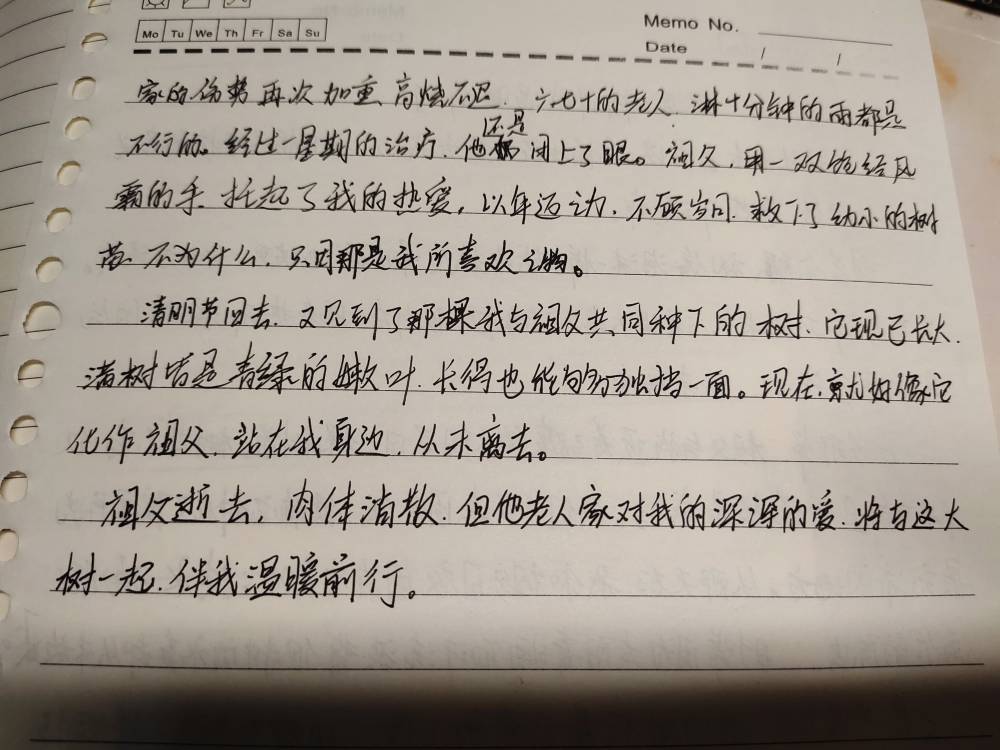 Memo No.
Mo Tu We Th Fr Sa Su
Date / /
家的伤势再次加重,高烧不退。六七十的老人,淋十分钟的雨都是
不行的。经过一星期的治疗,他还是闭上了眼。祖父,用一双饱经风
霜的手,托起了我的热爱,以年迈之力,不顾岁月,救下了幼小的树
苗,不为什么,只因那是我所喜欢之物。
清明节回去,又见到了那棵我与祖父共同种下的树,它现已长大,
满树皆是青绿的嫩叶,长得也能够独挡一面。现在,就好像它
化作祖父,站在我身边,从未离去。
祖父逝去,肉体消散,但他老人家对我的深深的爱,将与这大
树一起,伴我温暖前行。